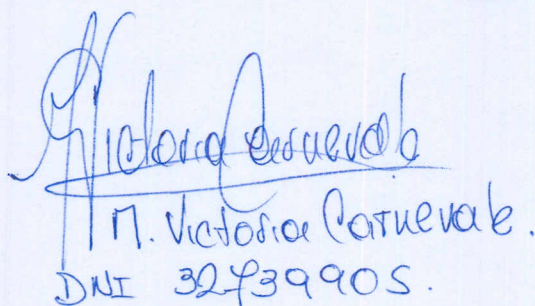 M Victoria Carnevale
M. Victoria Carnevale.
DNI 32739905.